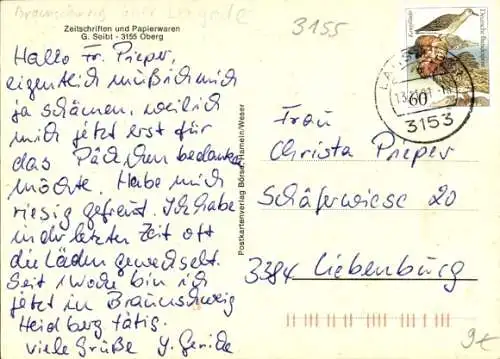 Braunschweig über Lengede
3155
Zeitschriften und Papierwaren
G. Seibt - 3155 Oberg
Hallo Fr. Pieper,
eigentlich müßich mich
ja schämen, weil ich
mich jetzt erst für
das Päckchen bedanken
möchte. Habe mich
riesig gefreut. Ich habe
in der letzten Zeit oft
die Läden gewechselt.
Seit 1 Woche bin ich
jetzt in Braunschweig
Heidberg tätig.
viele Grüße
Postkartenverlag Börse, Hameln/Weser
Deutsche Bundespost
60
3153
Frau
Christa Pieper
Schäferwiese 20
3384 Liebenburg
9€